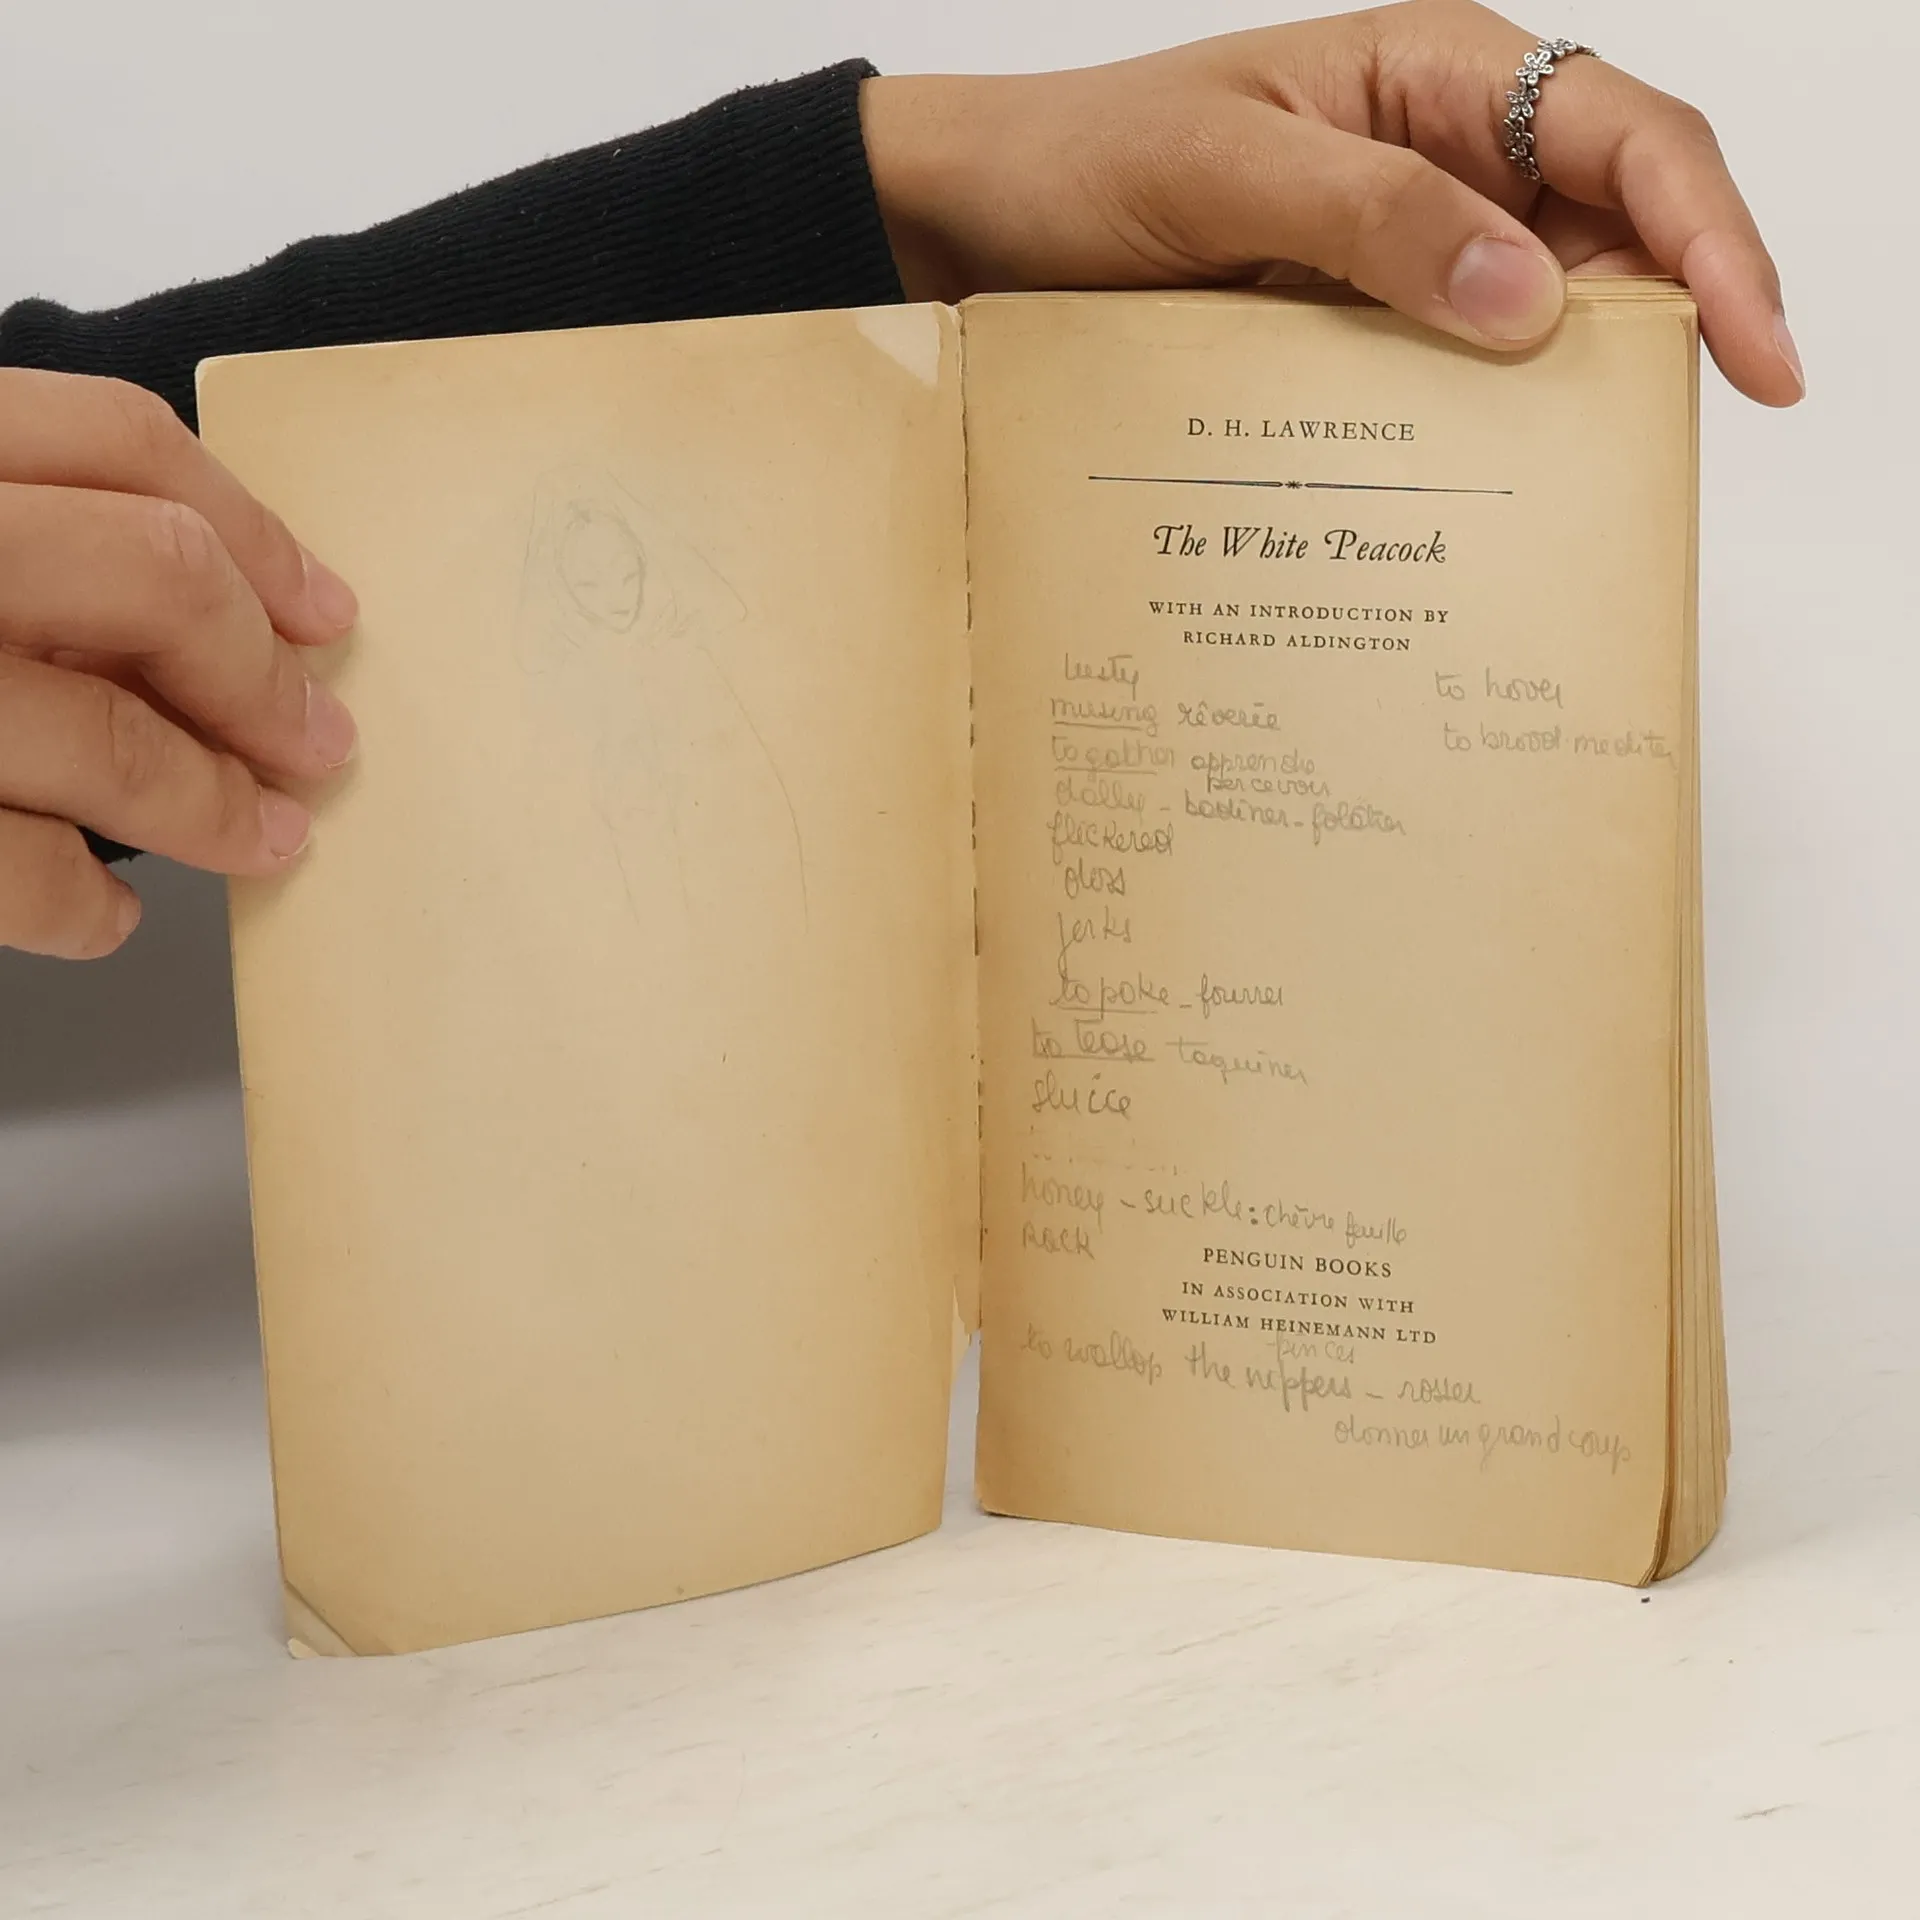 D. H. LAWRENCE
The White Peacock
WITH AN INTRODUCTION BY
RICHARD ALDINGTON
lusty
to hover
musing rêverie
to brood méditer
to gather apprendre
percevoir
dally - badiner - folâtrer
flickered
gloss
jerks
to poke - fourrer
to tease taquiner
sluice
honey - suckle: chèvrefeuille
rack
PENGUIN BOOKS
IN ASSOCIATION WITH
WILLIAM HEINEMANN LTD
pinces
to wallop the nippers - rosser
donner un grand coup